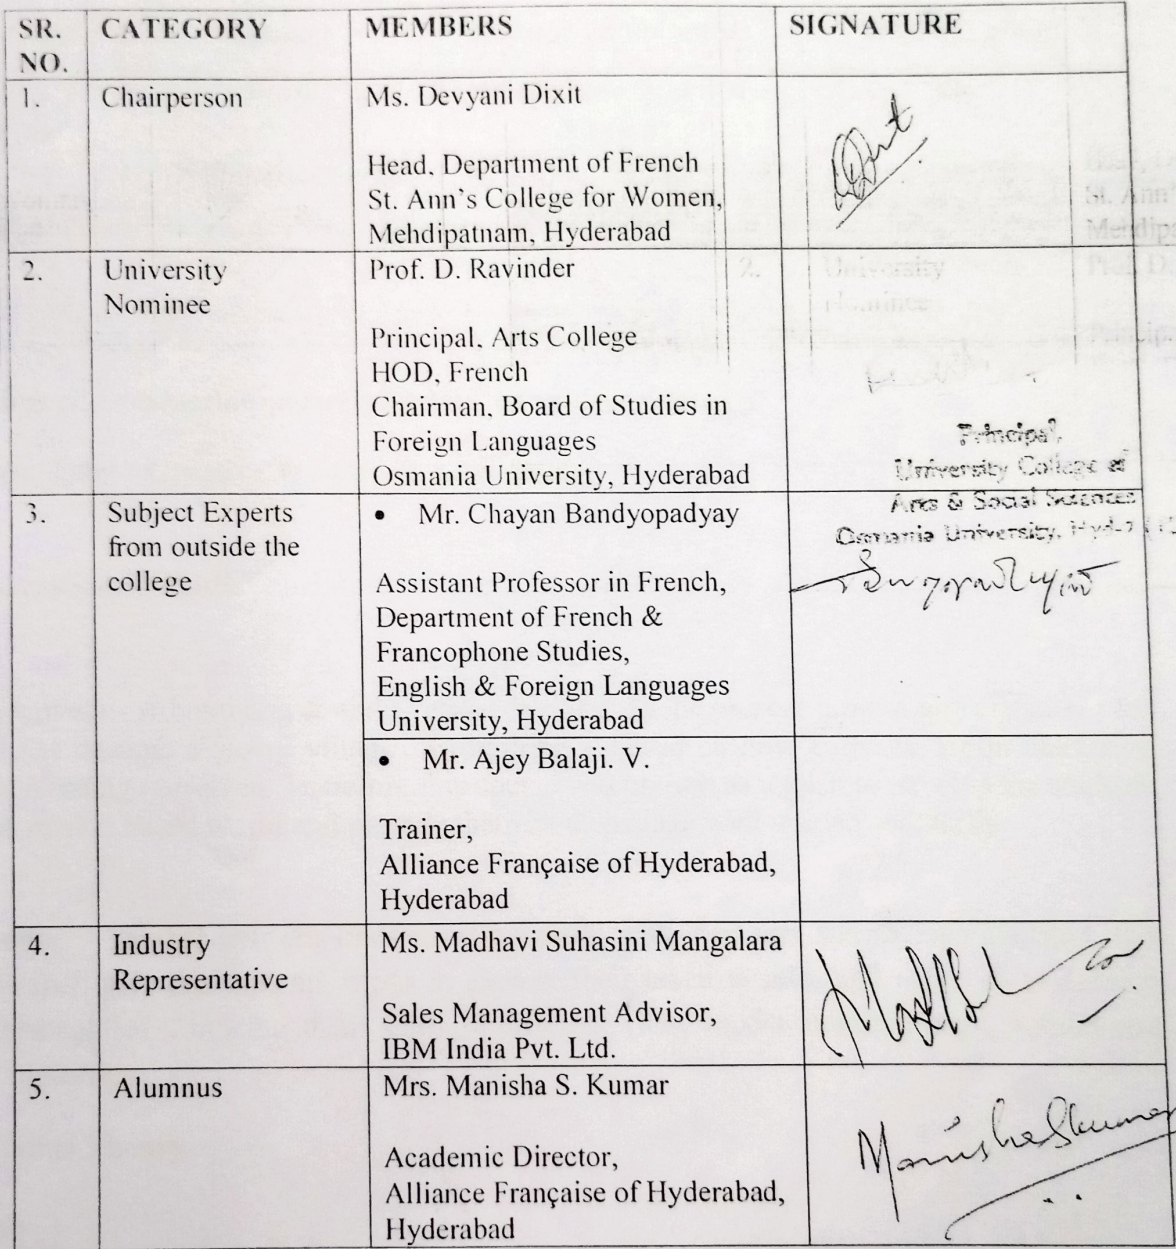 SR. NO. CATEGORY MEMBERS SIGNATURE
1. Chairperson Ms. Devyani Dixit
Head, Department of French
St. Ann's College for Women,
Mehdipatnam, Hyderabad
2. University Nominee Prof. D. Ravinder
Principal, Arts College
HOD, French
Chairman, Board of Studies in
Foreign Languages
Osmania University, Hyderabad
Principal,
University College of
Arts & Social Sciences
Osmania University, Hyd-7
3. Subject Experts
from outside the
college
• Mr. Chayan Bandyopadyay
Assistant Professor in French,
Department of French &
Francophone Studies,
English & Foreign Languages
University, Hyderabad
• Mr. Ajey Balaji. V.
Trainer,
Alliance Française of Hyderabad,
Hyderabad
4. Industry
Representative
Ms. Madhavi Suhasini Mangalara
Sales Management Advisor,
IBM India Pvt. Ltd.
5. Alumnus Mrs. Manisha S. Kumar
Academic Director,
Alliance Française of Hyderabad,
Hyderabad
ManishaSkumar